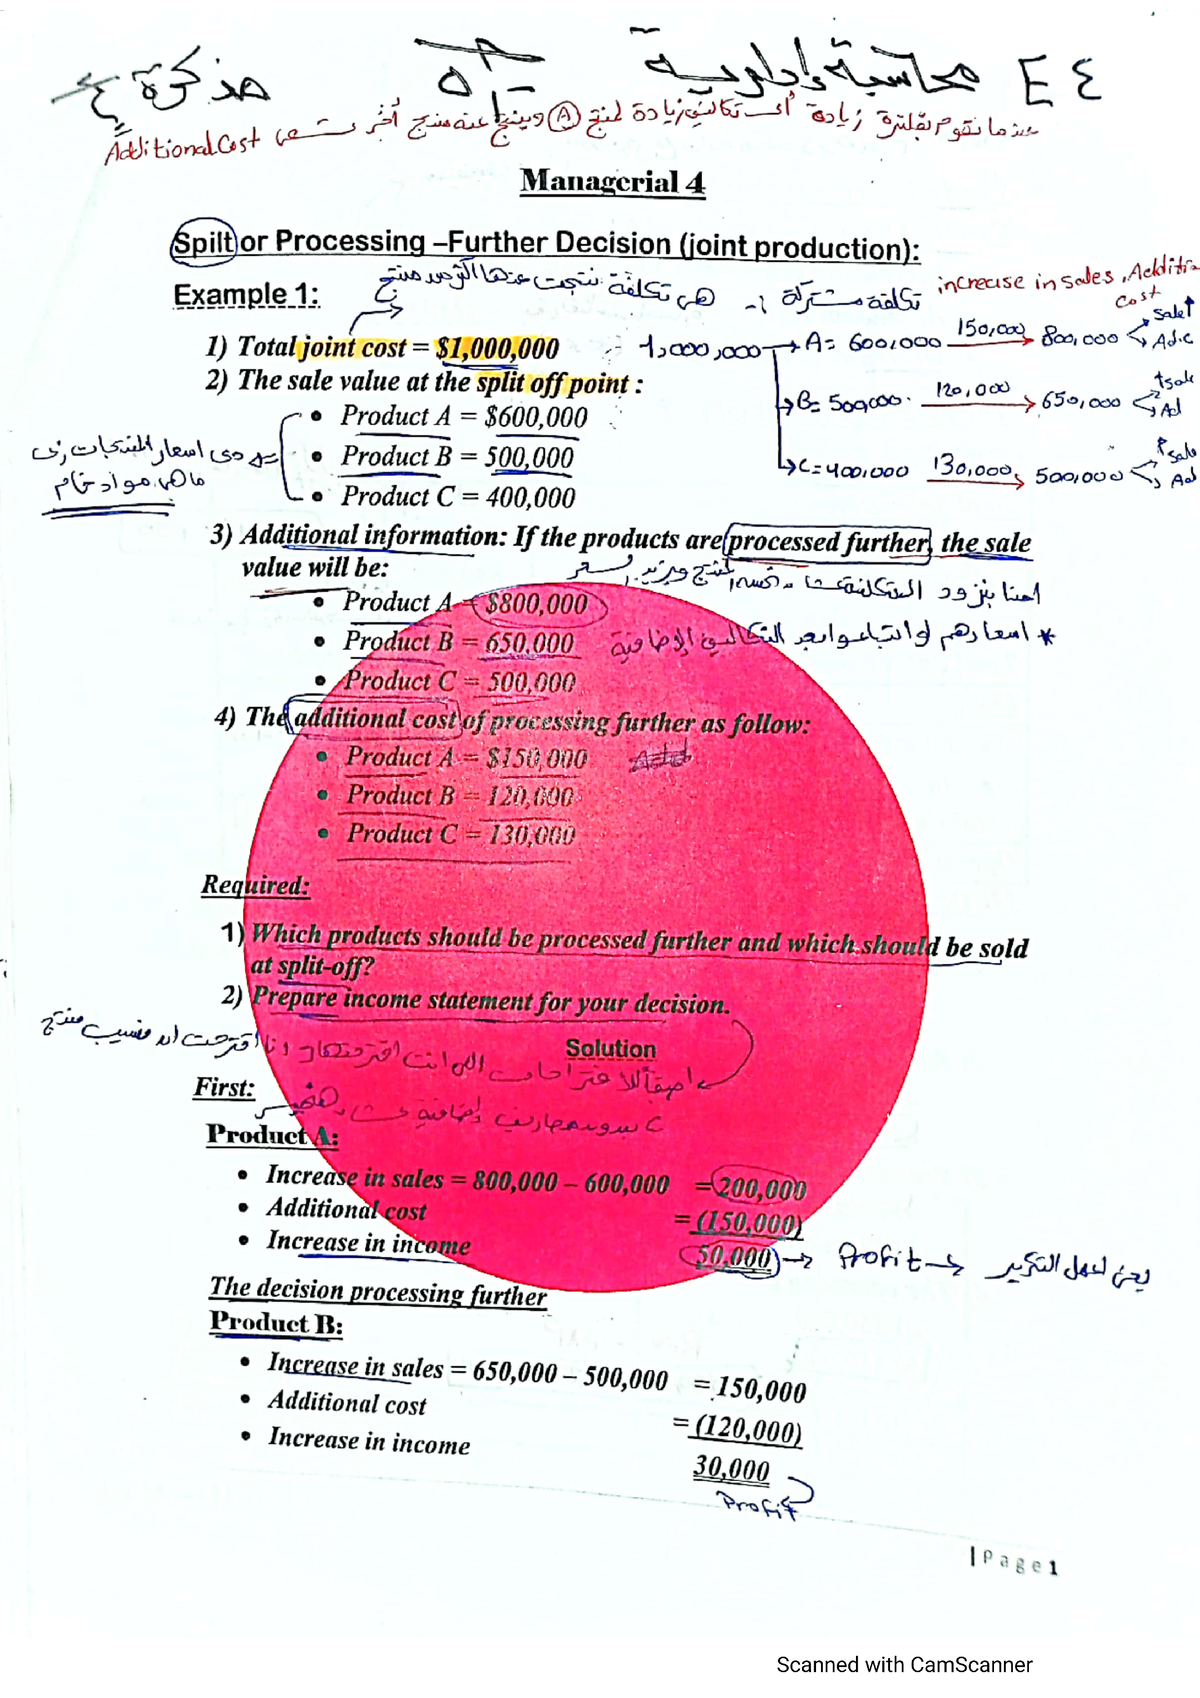 محاسبة إدارية E4
مذكرة ٤
عندما نقوم بفلترة زيادة أى تكاليف زيادة لمنتج A وينتج عنه منتج أخر تسمى Additional Cost
Managerial 4
Spilt or Processing –Further Decision (joint production):
تكلفة مشتركة :- هى تكلفة نتجت عندها أكثر من منتج
increase in sales, Additi
cost
Example 1:
1) Total joint cost = $1,000,000
1,000,000 → A= 600,000 150,000 → 800,000 sale↑ Ad.c
2) The sale value at the split off point :
→ B= 500,000. 120,000 → 650,000 ↑sale Ad
• Product A = $600,000
• Product B = 500,000
→ C=400,000 130,000 → 500,000 ↑sale Ad
دى اسعار المنتجات زى
ما هى مواد خام
• Product C = 400,000
3) Additional information: If the products are processed further, the sale
value will be:
احنا بنزود التكلفة عشان المنتج ويزيد السعر
• Product A = $800,000
* اسعارهم لو اتباعوا بعد التكاليف الإضافية
• Product B = 650,000
• Product C = 500,000
4) The additional cost of processing further as follow:
• Product A = $150,000
• Product B = 120,000
• Product C = 130,000
Required:
1) Which products should be processed further and which should be sold
at split-off?
2) Prepare income statement for your decision.
Solution
First:
Product A:
• Increase in sales = 800,000 – 600,000 = 200,000
• Additional cost = (150,000)
• Increase in income 50,000 → Profit →
The decision processing further
Product B:
• Increase in sales = 650,000 – 500,000 = 150,000
• Additional cost = (120,000)
• Increase in income 30,000
Profit
| Page 1
Scanned with CamScanner